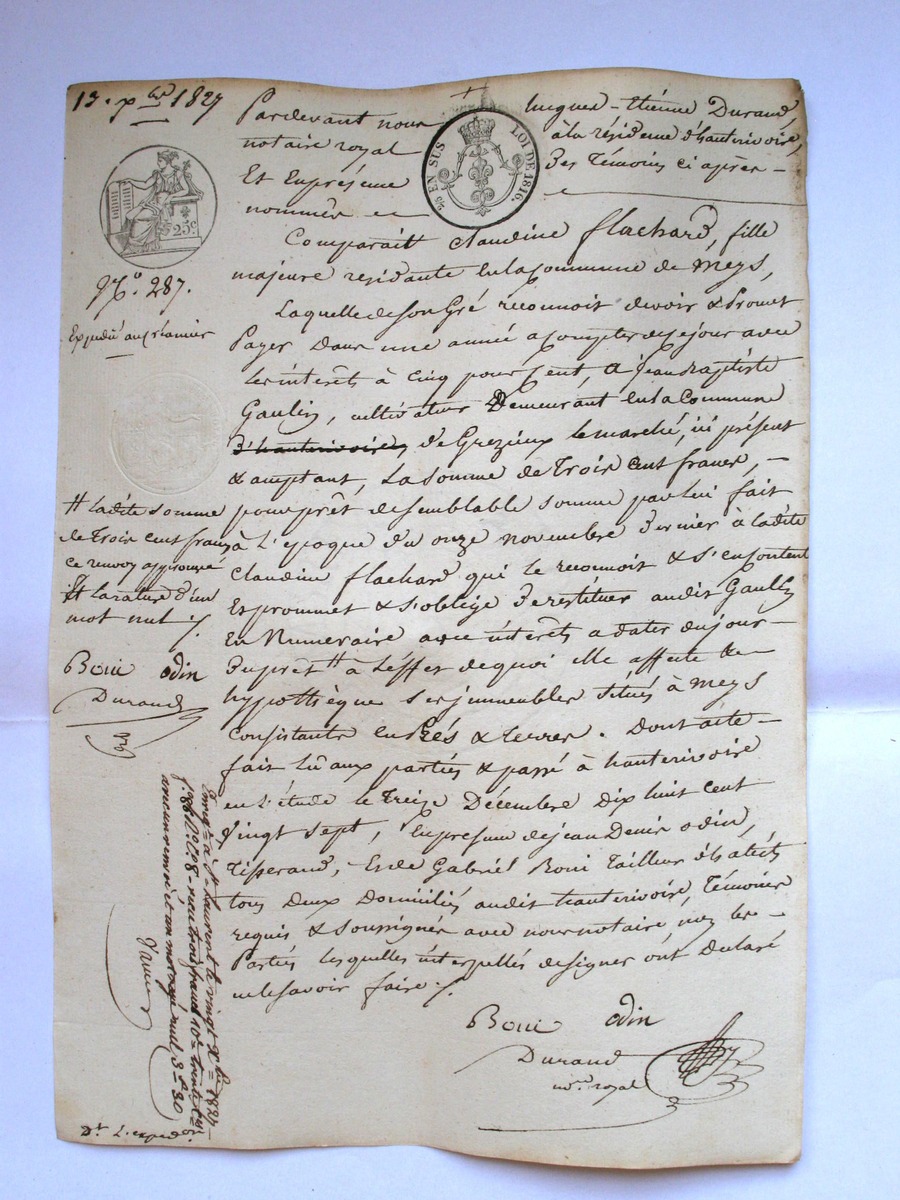 13. xbre 1827
Pardevant nous hugues-étiénne Durand,
notaire royal à la résidence d'hauterivoire,
Et En présence des témoins ci après -
nommés
EN SUS LOI DE 1816.
25c
No. 287.
Expédié au créancier
Comparaît Claudine flachard, fille
majeure residante en la Commune de Meys,
Laquelle de son Gré reconnoit devoir & Promet
Payer Dans une année a compter de ce jour avec
Les intérêts à cinq pour Cent, à jean Baptiste
Gaulin, cultivateur Demeurant en la Commune
d'hauterivoire, de Grezieux le marché, ici présent
& acceptant, La somme de Trois cent francs, -
pour prêt de semblable somme par lui fait
à L'epoque du onze novembre dernier à ladite
Claudine flachard qui le reconnoit & s'en contente
Et promet & s'oblige de restituer audit Gaulin
En Numeraire avec intérêts a dater du jour -
du prêt # à L'éffet de quoi elle affecte &
hypothèque ses immeubles situés à Meys
Consistants en Prés & terres. Dont acte -
fait Lû aux parties & passé à hauterivoire
en L'étude le Treize Décembre dix huit cent
Vingt sept, En presence de jean Denis odin,
Tisserand, Et de Gabriël Boni Tailleur d'habits
tous Deux Domiciliés audit hauterivoire, Témoins
requis & soussignés avec nous notaire, non les -
Parties lesquelles intérpellés de signer ont declaré
ne le savoir faire ./.
Boni odin
Durand
nore royal
# ladite somme
de trois cent francs
ce renvoy approuvé
# la rature d'un
mot nul ./.
Boni odin
Durand
nre
Enreg. à St. Laurent le vingt Xbre 1827
f. 88 reçu trois francs 10e trente c.
aucun renvoi et un mot rayé nul 3f 30
Dt. L'expedon